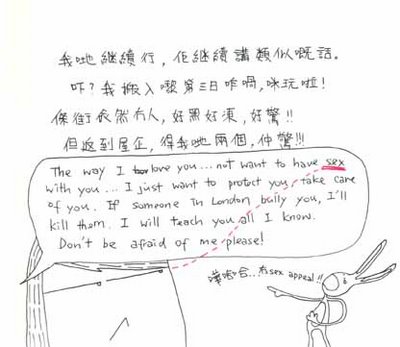 我哋繼續行，佢繼續講類似嘅話。
吓？我搬入嚟第三日咋喎，咪玩啦！
條街依然冇人，好黑好凍，好驚!!
但返到屋企，得我哋兩個，仲驚!!!
The way I love you... not want to have sex
with you... I just want to protect you, take care
of you. If someone in London bully you, I'll
kill them. I will teach you all I know.
Don't be afraid of me please!
sex appeal!!